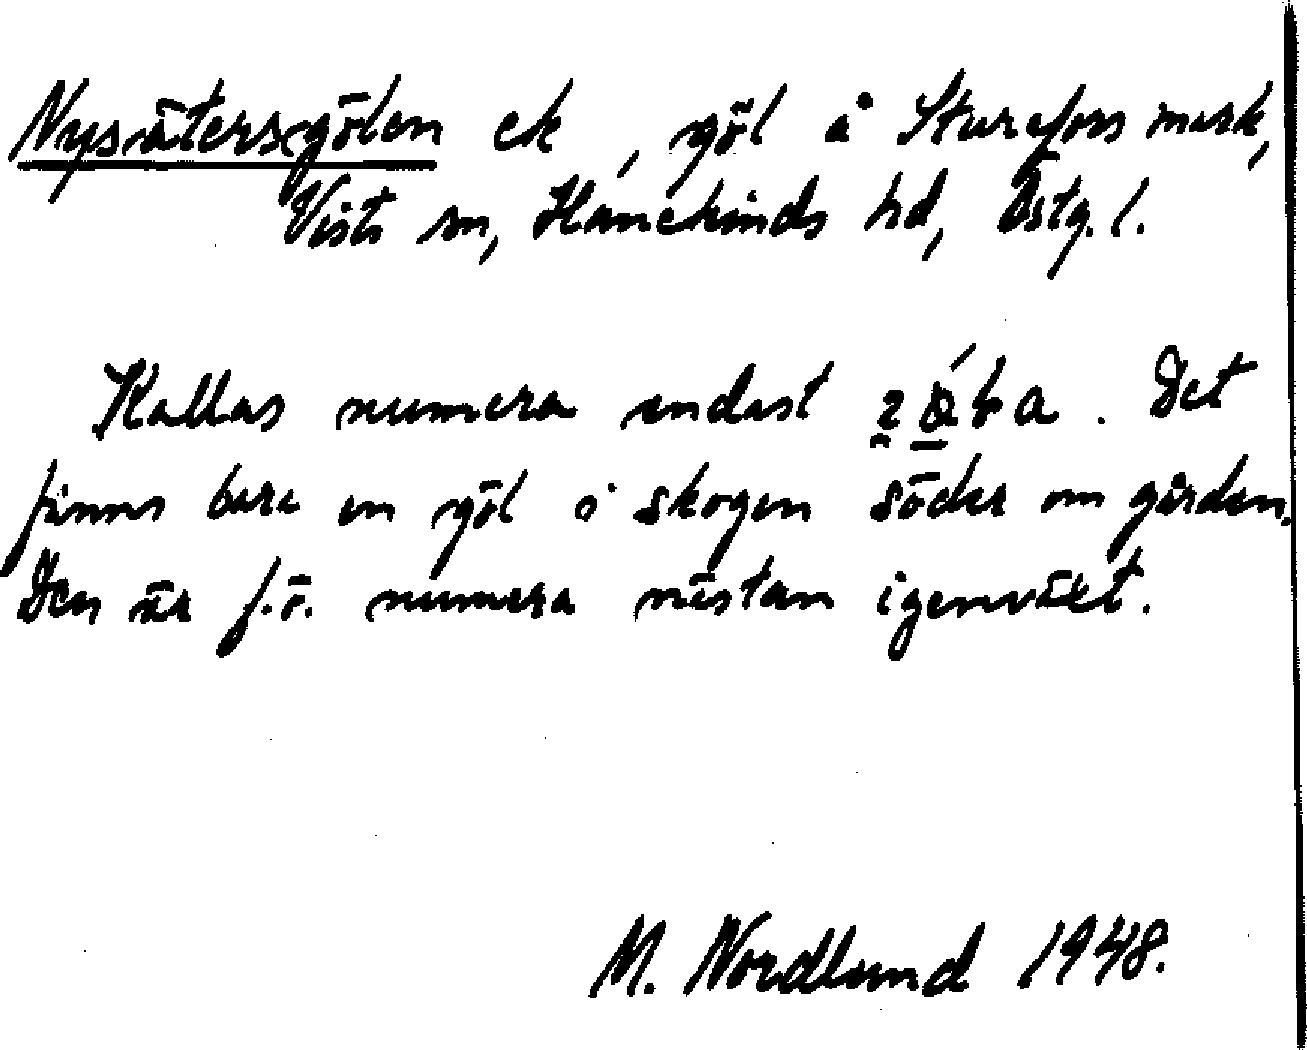 Nysätersgölen ek, göl å Sturefors mark,
Vists sn, Hanekinds hd, Östg. l.
Kallas numera endast. Det
finns bara en göl i skogen söder om gården.
Den är f.ö. numera nästan igenväxt.
M. Nordlund 1948.